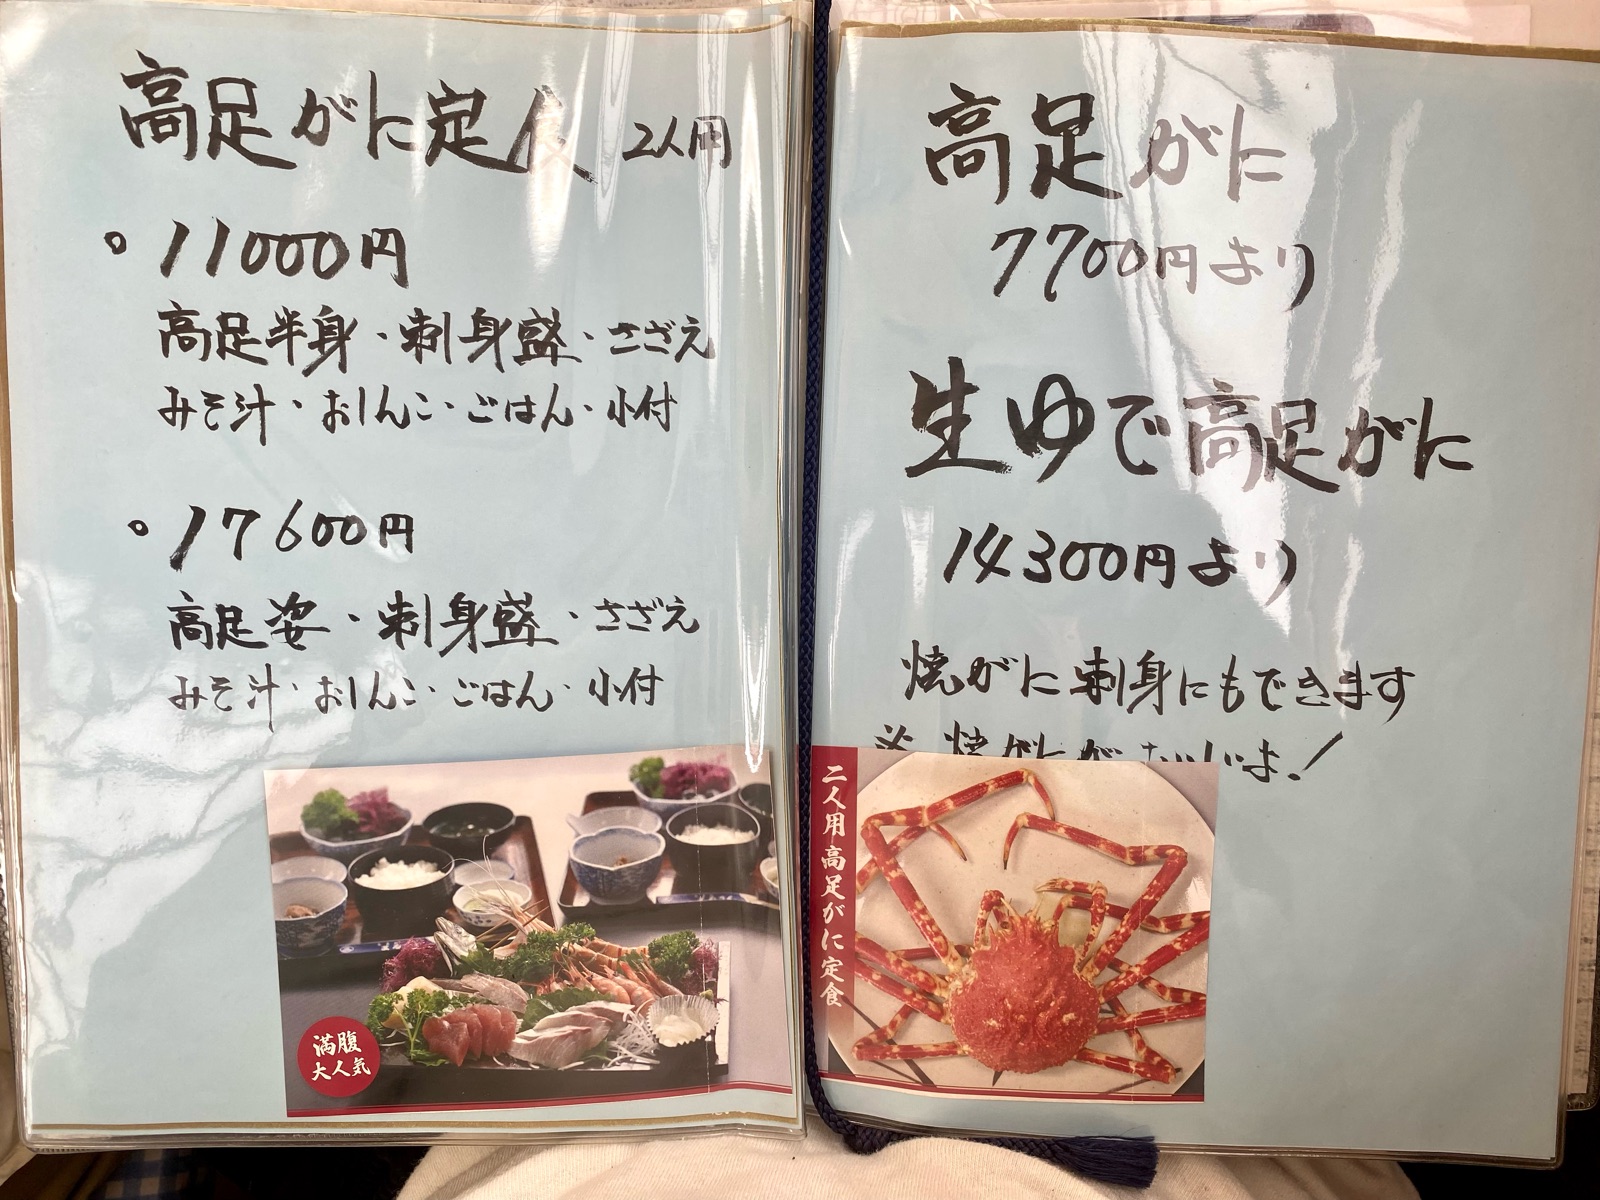 高足がに定食 2人用
。11000円
高足半身・刺身盛・さざえ
みそ汁・おしんこ・ごはん・小付
。17600円
高足姿・刺身盛・さざえ
みそ汁・おしんこ・ごはん・小付
満腹
大人気
高足がに
7700円より
生ゆで高足がに
14300円より
焼がに刺身にもできます
※焼がにが
よ!
二人用高足がに定食